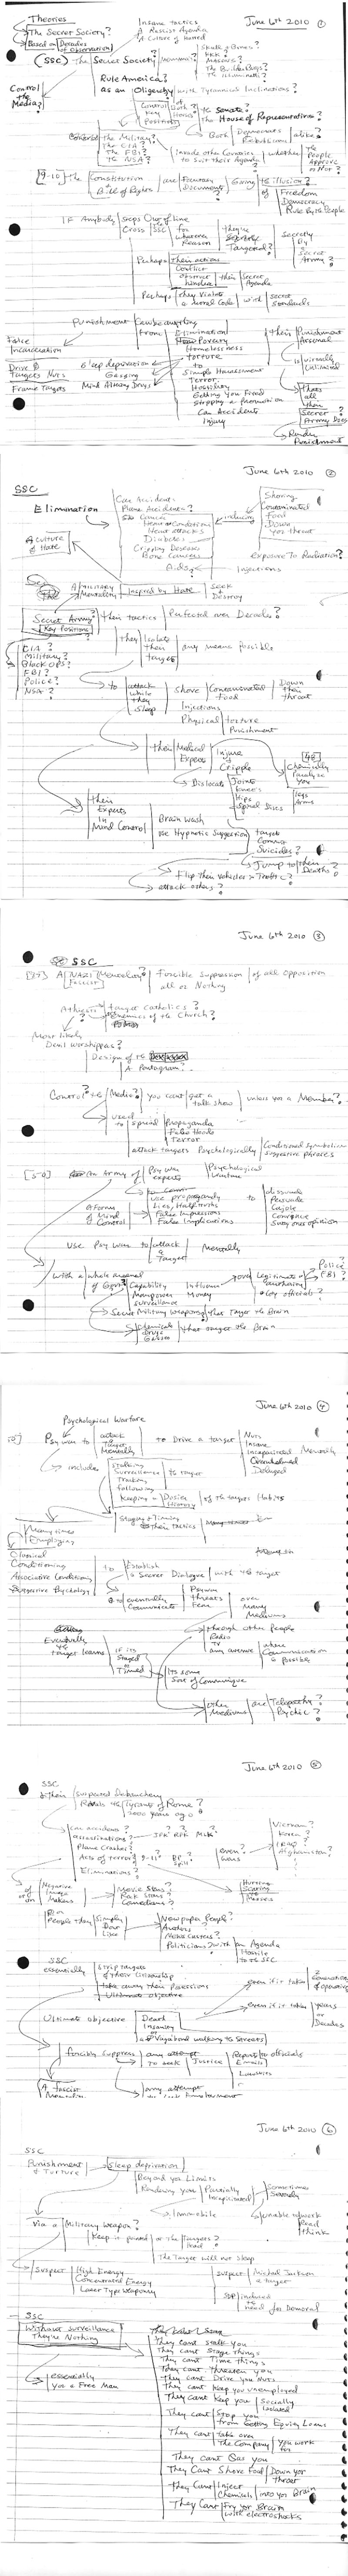 Theories
The Secret Society?
Based on Decades of Observation
Insane tactics
A Racist Agenda
A Culture of Hatred
June 6th 2010 ①
Skulls & Bones?
KKK?
Masons?
The Illuminati?
(SSC) The Secret Society
Control the Media?
Rule America?
as an Oligarchy with Tyrannical Inclinations?
Control Key Positions
the Senate?
the House of Representatives?
Control the Military?
The CIA?
The FBI?
The NSA?
Both Democrats Republicans alike?
invade other Countries to Suit their Agenda
whether the People Approve or Not?
The Constitution
Bill of Rights
are Documents
Giving the illusion?
of Freedom
Democracy
Rule By the People
If Anybody steps Out of line
Cross SSC for whatever Reason
they're Targeted?
Secretly By Secret Army?
Perhaps their actions
Conflict
obstruct
hinders
their Secret Agenda
Perhaps they violate a moral Code with Secret Standards
Punishment Can be anything from
Elimination
Poverty
Homelessness
torture
to
Simple Harassment
Terror
Hostility
Getting You Fired
Stopping a Promotion
Car Accidents
Injury
their Punishment Arsenal
is virtually Unlimited
thats all their Secret Army Does
Render Punishment
False Incarceration
Drive Targets Nuts
Frame Targets
Sleep deprivation
Gassing
Mind Altering Drugs
June 6th 2010 ②
SSC
Elimination
Car Accidents
Plane Accidents?
Cancer
Heart Conditions
Heart attacks
Diabetes
Crippling Diseases
Bone Cancers
Aids?
inducing
Shoving Contaminated Food Down Yor throat
Exposure To Radiation?
Injections
A Culture of Hate
A Military Mentality
Inspired by Hate
Seek & Destroy
Secret Army?
Key Positions
CIA?
Military?
Black Ops?
FBI?
Police?
NSA?
their tactics Perfected over Decades?
They isolate their targets any means possible
to attack while they Sleep
shove Contaminated Food Down their throat
Injections
Physical torture
Punishment
their Medical Experts
Injure
Cripple
Chemically Paralyze You
legs
Arms
Dislocate
Joints
Knees
Hips
Spinal Discs
their Experts in Mind Control
Brain wash
Use Hypnotic Suggestion
targets Commit Suicides?
Jump to their Deaths?
Flip their vehicles in Traffic?
attack others?
June 6th 2010 ③
SSC
A NAZI Mentality?
Fascist
Forcible Suppression of all Opposition
all or Nothing
Athiests
target Catholics?
Enemies of the Church?
Most likely Devil worshippers?
Design of the
A Pentagram?
Control the Media?
you cant get a talk show unless you a Member?
used to
spread Propaganda
False hoods
Terror
attack targets Psychologically
Conditioned Symbolism
Suggestive phrases
An Army of Psy war experts
Psychological warfare
A form of Mind Control
use propaganda
Lies, Half truths
False Impressions
False Implications
to
dissuade
Persuade
Cajole
Convince
Sway ones opinion
Use Psy war to attack a target Mentally
with a whole arsenal of
Capability
Manpower
Surveillance
Influence
Money
over Legitimate authority
Key officials?
Police?
FBI?
Secret Military Weapons that Target the Brain
Chemicals
drugs
Gasses
that target the Brain
June 6th 2010 ④
Psychological Warfare
Psy war to attack a Target Mentally
to Drive a target
Nuts
Insane
Incapacitated
Overwhelmed
Delayed
Mentally
includes
Stalking
Surveillance
Tracking
Following
the target
Keeping a Dosier
History
of the targets Habits
Staging & Timing their tactics
Many times Employing
Classical Conditioning
Associative Conditioning
Suggestive Psychology
to Establish a Secret Dialogue with the target
to eventually Communicate
Psywar
threats
Fear
over Many Mediums
Eventually the target learns
if its Staged or Timed
Its some Sort of Communique
through other People
Radio
TV
any avenue where Communication is Possible
other Mediums are
Telepathy?
Psychic?
June 6th 2010 ⑤
SSC
their Debauchery
Rivals the Tyrants of Rome?
2000 years ago
Car accidents?
assassinations? JFK RFK MLK?
Plane Crashes?
Acts of terror? 9-11? BP Spill?
Eliminations?
even? wars
Vietnam?
Korea?
Iraq?
Afghanistan?
of Negative Image Makers
Movie Stars?
Rock Stars?
Comedians?
People they Simply Dont Like
Newspaper People?
Authors?
News Casters?
Politicians? with an Agenda Hostile to the SSC
SSC essentially
Strip targets of their Citizenship
take away their Possessions
Ultimate objective
even if it takes 2 Generations of operatives
Ultimate objective
Death
Insanity
or a Vagabond walking the streets
even if it takes years or Decades
forcibly suppress any attempt to seek Justice
Reports to officials
Emails
Lawsuits
A Fascist
any attempt
June 6th 2010 ⑥
SSC
Punishment & Torture
Sleep deprivation
Beyond yor limits
Rendering you Partially Incapacitated
Sometimes Severely
Immobile
unable to work
Read
think
via a Military Weapon?
Keep it pointed at the Targets Head?
The Target will not sleep
Suspect
High Energy
Concentrated Energy
Laser Type Weaponry
Suspect Michael Jackson a target
induced his need for Demerol
SSC
Without Surveillance Theyre Nothing
essentially you a Free Man
They cant stalk you
They cant Stage things
They cant Time things
They cant Threaten you
They cant Drive you Nuts
They cant Keep you unemployed
They cant Keep you Socially Isolated
They cant Stop you from Getting Equity Loans
They cant take over The Company you work for
They cant Gas you
They Cant Shove Food Down yor throat
They Cant Inject Chemicals into yor Brain
They Cant Fry yor Brain with electroshocks